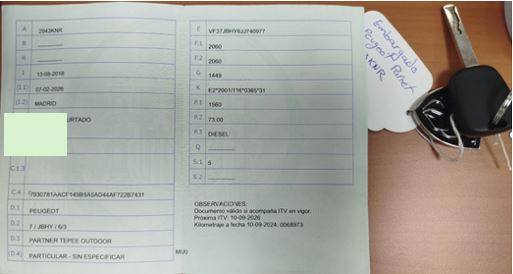 A 2943KNR
B ----------
H ----------
I 13-08-2018
(I.1) 07-02-2026
(I.2) MADRID
URTADO
C.1.3
C.4
D.1 PEUGEOT
D.2 7 / JBHY / 6/3
D.3 PARTNER TEPEE OUTDOOR
(D.4) PARTICULAR - SIN ESPECIFICAR
E VF37JBHY6JJ740977
F.1 2060
F.2 2060
G 1449
K E2*2001/116*0365*31
P.1 1560
P.2 73.00
P.3 DIESEL
Q ----------
S.1 5
S.2 ----------
OBSERVACIONES:
Documento válido si acompaña ITV en vigor.
Próxima ITV: 10-09-2026
Kilometraje a fecha 10-09-2024: 0068973
Embargado
Peugeot Parner
KNR